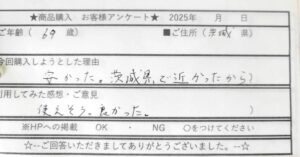 ★商品購入 お客様アンケート★ 2025年 月 日
ご年齢( 69 歳) ■ご住所(茨城 県
今回購入しようとした理由
安かった。茨城県で近かったから)
利用してみた感想・ご意見
使えそう。良かった。 )
※HPへの掲載 OK ・ NG ○をつけてください
☆--ご回答いただきましてありがとうございました。--☆